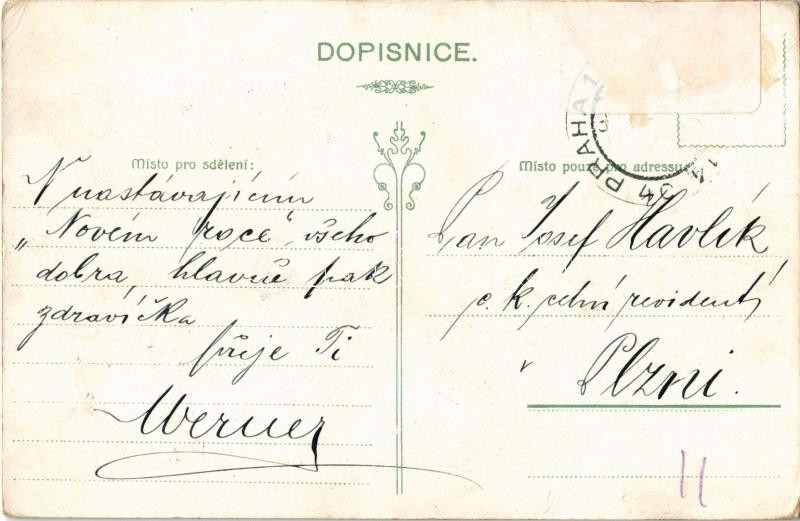 DOPISNICE.
Místo pro sdělení:
V nastávajícím
„Novém roce“ všeho
dobra, hlavně pak
zdravíčka
přeje Ti
Werner
Místo pouze pro adressu:
Pan Josef Havlík
c. k. celní revident
v Plzni.
PRAHA 1
11